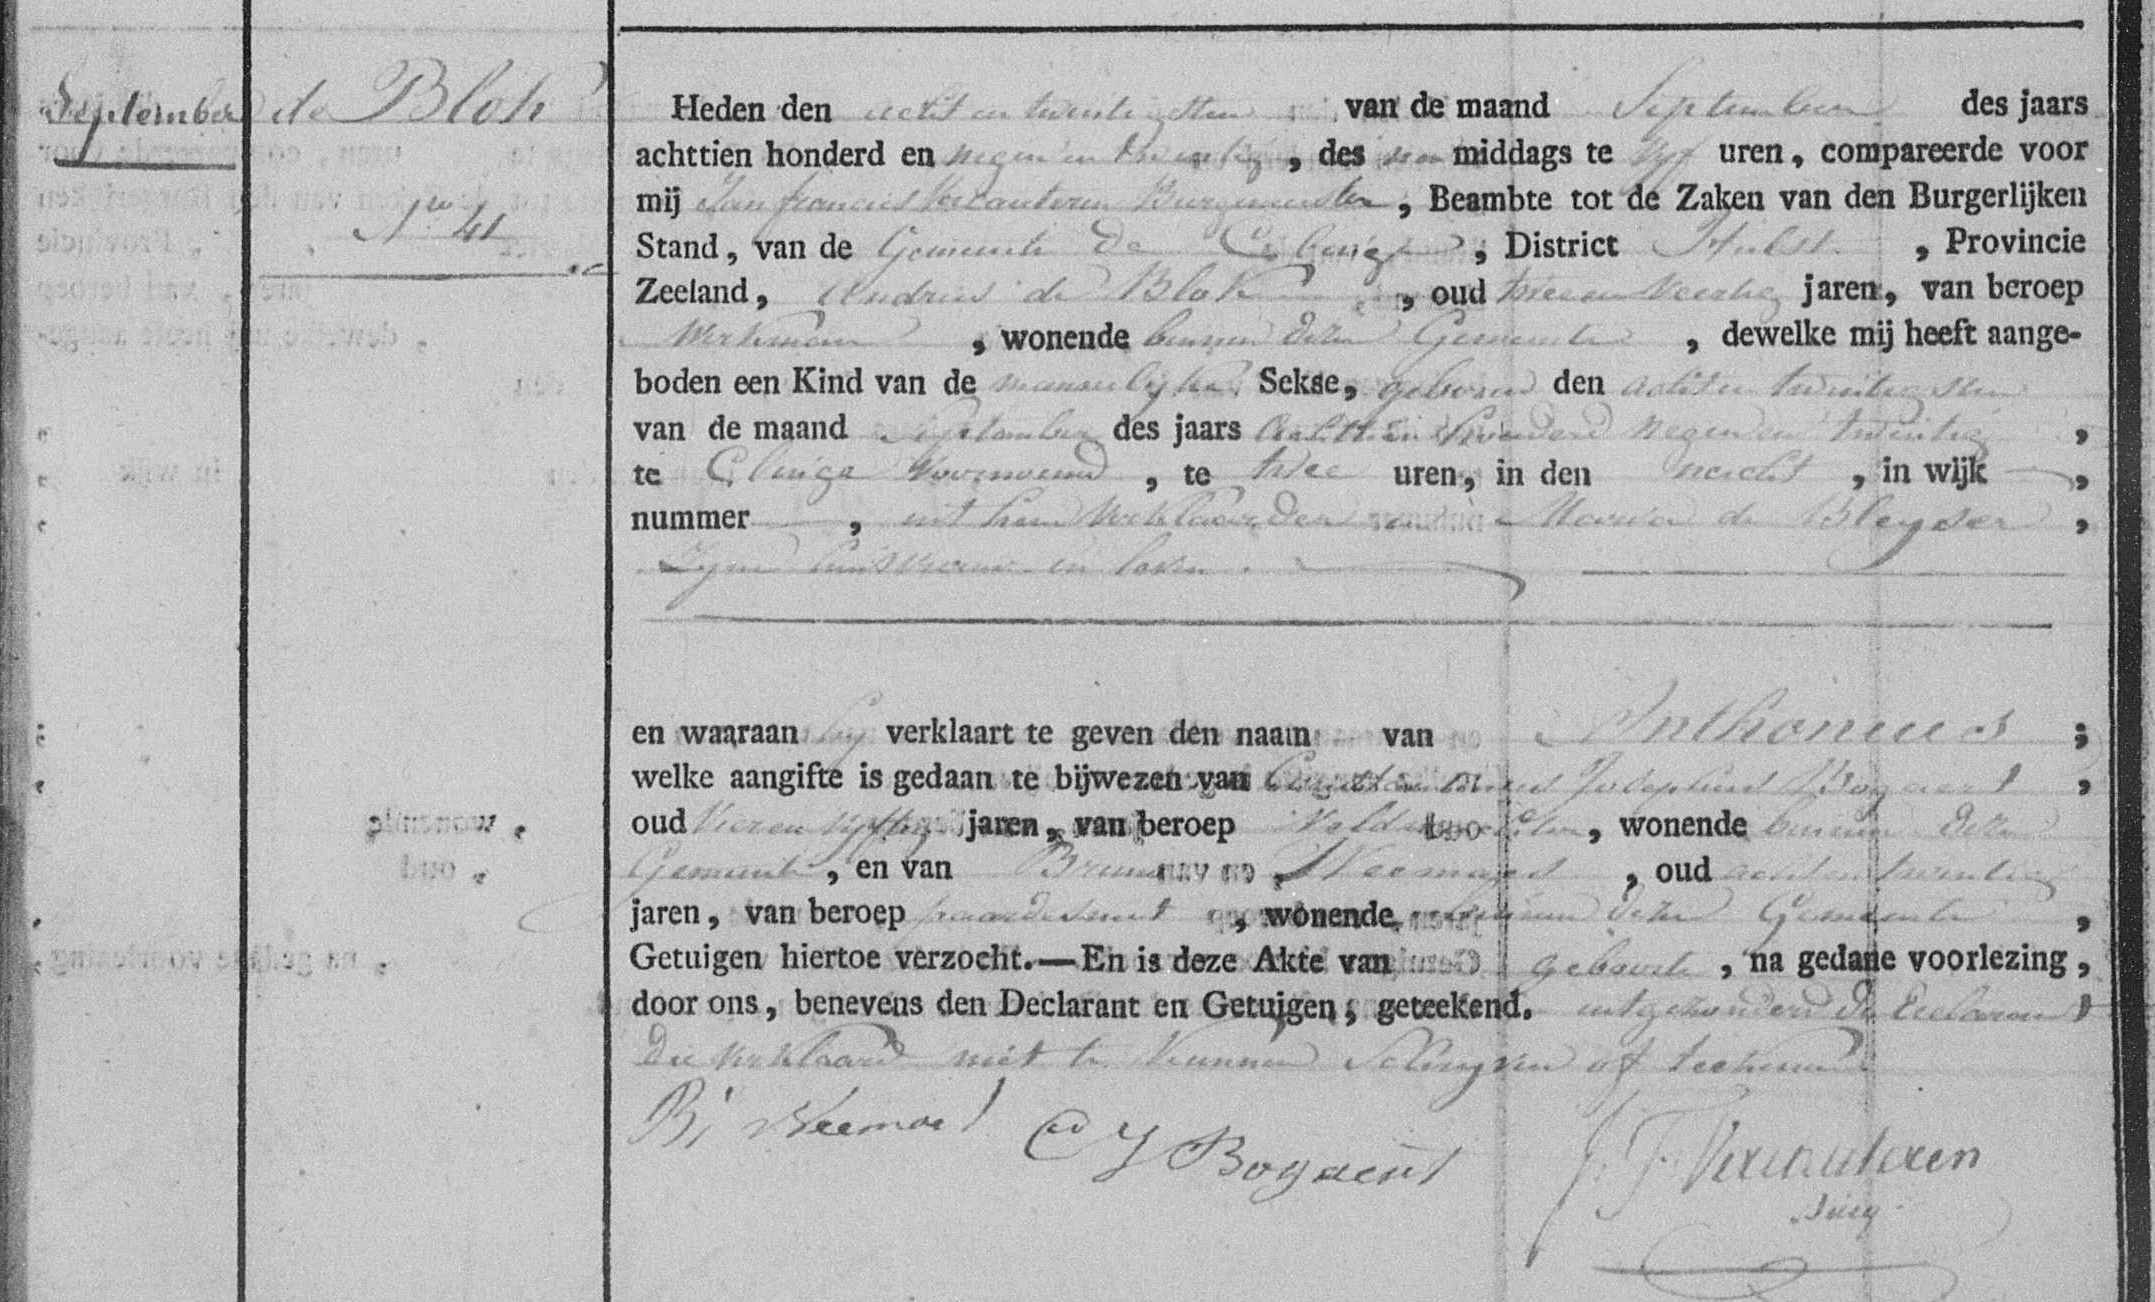 September de Blok
N.o 41
Heden den acht en twintigsten van de maand September des jaars
achttien honderd en negen en twintig, des na middags te vyf uren, compareerde voor
mij Jan francies Vercauteren Burgemeester, Beambte tot de Zaken van den Burgerlijken
Stand, van de Gemeente de Clinge, District Hulst, Provincie
Zeeland, Andries de Blok, oud twee en veertig jaren, van beroep
Werkman, wonende binnen deze Gemeente, dewelke mij heeft aange-
boden een Kind van de mannelyke Sekse, geboren den acht en twintigsten
van de maand September des jaars achttien honderd negen en twintig,
te Clinge voornoemd, te twee uren, in den nacht, in wijk —,
nummer —, uit hem verklaarder en Maria de Bleyser,
Zyne huisvrouw
en waaraan hy verklaart te geven den naam van Anthonius;
welke aangifte is gedaan te bijwezen van Josephus Bogaert,
oud Vier en vyftig jaren, van beroep Veldwachter, wonende binnen deze
Gemeente, en van Bruno Weemaes, oud acht en twintig
jaren, van beroep paardesmet, wonende binnen deze Gemeente,
Getuigen hiertoe verzocht.—En is deze Akte van geboorte, na gedane voorlezing,
door ons, benevens den Declarant en Getuigen, geteekend. uitgezonderd de Eclarant
die verklaard niet te kunnen Schryven of teekenen
B; Weemaes C J Bogaert J. F. Vercauteren